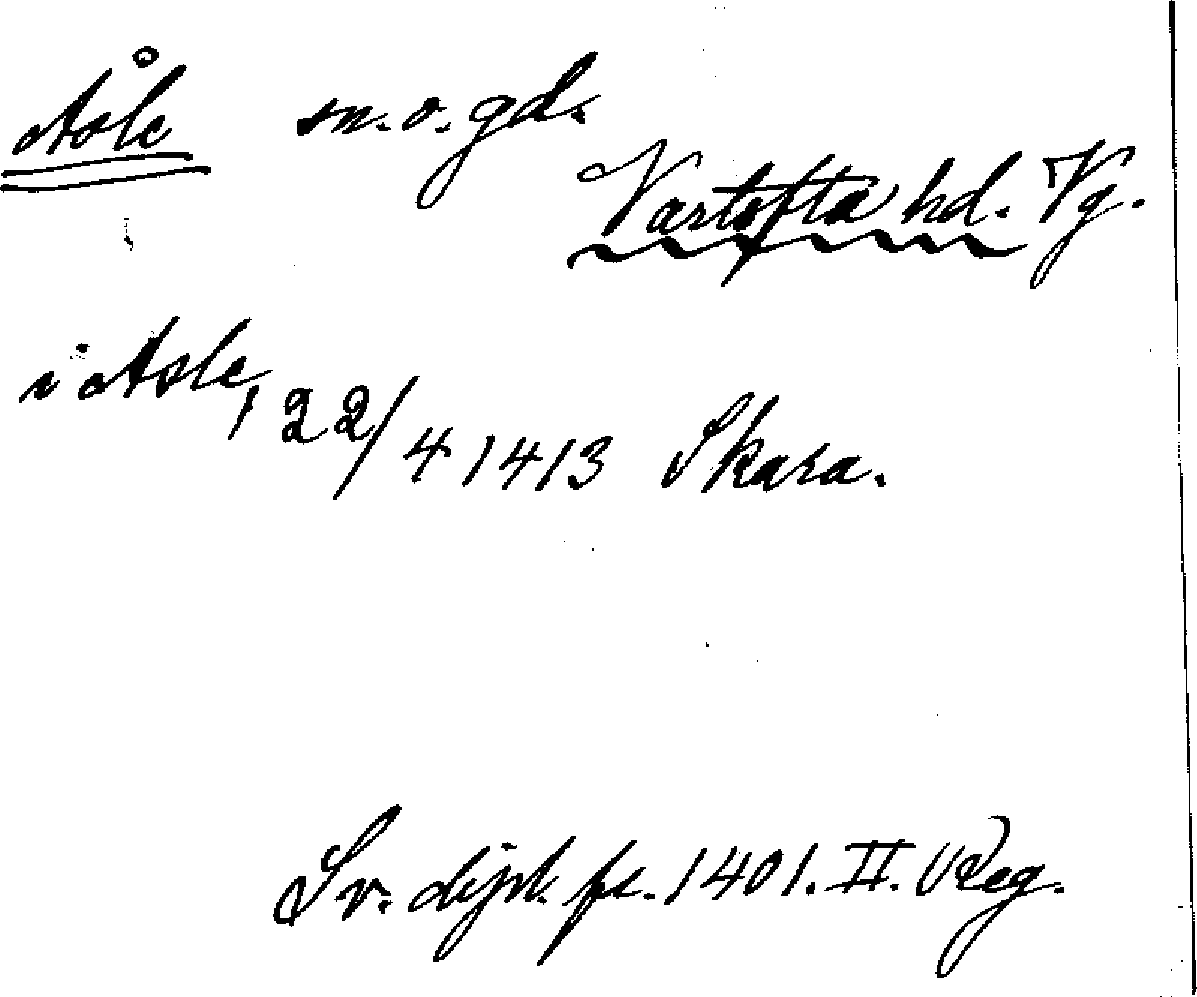 Åsle sn. o. gd.
Vartofta hd. Vg.
i Asle, 22/4 1413 Skara.
Sv. dipl. fr. 1401. II. Reg.